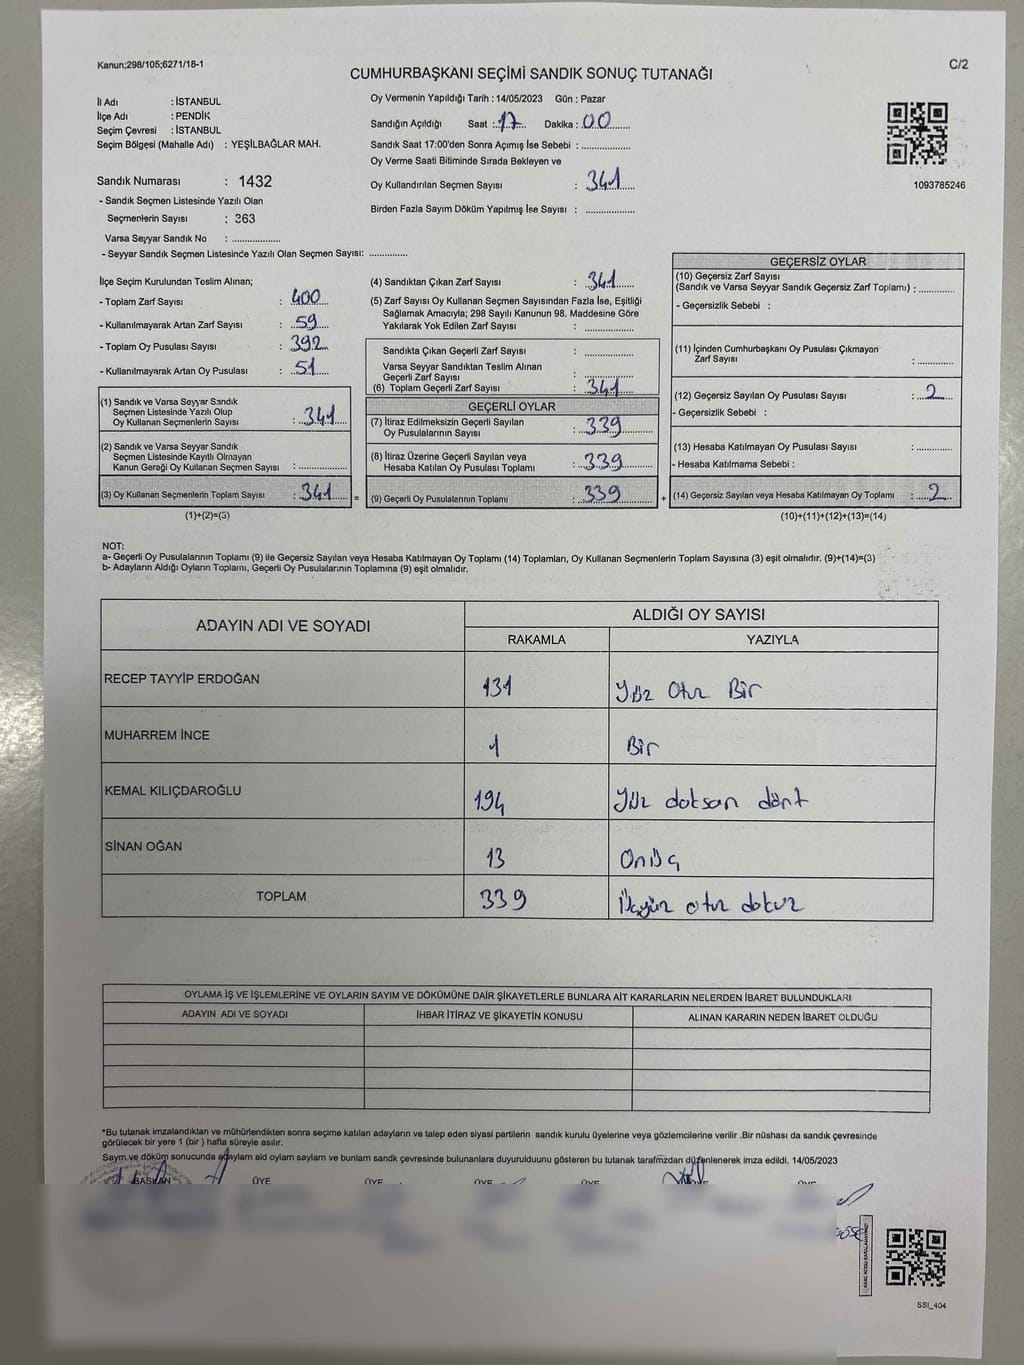 Kanun;298/105;6271/18-1
C/2
CUMHURBAŞKANI SEÇİMİ SANDIK SONUÇ TUTANAĞI
İl Adı : İSTANBUL
İlçe Adı : PENDİK
Seçim Çevresi : İSTANBUL
Seçim Bölgesi (Mahalle Adı) : YEŞİLBAĞLAR MAH.
Sandık Numarası : 1432
- Sandık Seçmen Listesinde Yazılı Olan
Seçmenlerin Sayısı : 363
Varsa Seyyar Sandık No : ..................
- Seyyar Sandık Seçmen Listesinde Yazılı Olan Seçmen Sayısı: ..............
Oy Vermenin Yapıldığı Tarih : 14/05/2023 Gün : Pazar
Sandığın Açıldığı Saat : 17 Dakika : 00
Sandık Saat 17:00'den Sonra Açımış İse Sebebi : ..................
Oy Verme Saati Bitiminde Sırada Bekleyen ve
Oy Kullandırılan Seçmen Sayısı : 341
Birden Fazla Sayım Döküm Yapılmış İse Sayısı : ..................
1093785246
İlçe Seçim Kurulundan Teslim Alınan;
- Toplam Zarf Sayısı : 400
- Kullanılmayarak Artan Zarf Sayısı : 59
- Toplam Oy Pusulası Sayısı : 392
- Kullanılmayarak Artan Oy Pusulası : 51
(1) Sandık ve Varsa Seyyar Sandık
Seçmen Listesinde Yazılı Olup
Oy Kullanan Seçmenlerin Sayısı : 341
(2) Sandık ve Varsa Seyyar Sandık
Seçmen Listesinde Kayıtlı Olmayan
Kanun Gereği Oy Kullanan Seçmen Sayısı : ..................
(3) Oy Kullanan Seçmenlerin Toplam Sayısı : 341 =
(1)+(2)=(3)
(4) Sandıktan Çıkan Zarf Sayısı : 341
(5) Zarf Sayısı Oy Kullanan Seçmen Sayısından Fazla İse, Eşitliği
Sağlamak Amacıyla; 298 Sayılı Kanunun 98. Maddesine Göre
Yakılarak Yok Edilen Zarf Sayısı : ..................
Sandıkta Çıkan Geçerli Zarf Sayısı : ..................
Varsa Seyyar Sandıktan Teslim Alınan
Geçerli Zarf Sayısı : ..................
(6) Toplam Geçerli Zarf Sayısı : 341
GEÇERLİ OYLAR
(7) İtiraz Edilmeksizin Geçerli Sayılan
Oy Pusulalarının Sayısı : 339
(8) İtiraz Üzerine Geçerli Sayılan veya
Hesaba Katılan Oy Pusulası Toplamı : 339
(9) Geçerli Oy Pusulalarının Toplamı : 339 +
GEÇERSİZ OYLAR
(10) Geçersiz Zarf Sayısı
(Sandık ve Varsa Seyyar Sandık Geçersiz Zarf Toplamı) : ..............
- Geçersizlik Sebebi :
(11) İçinden Cumhurbaşkanı Oy Pusulası Çıkmayan
Zarf Sayısı : ..............
(12) Geçersiz Sayılan Oy Pusulası Sayısı : 2
- Geçersizlik Sebebi :
(13) Hesaba Katılmayan Oy Pusulası Sayısı : ..............
- Hesaba Katılmama Sebebi :
(14) Geçersiz Sayılan veya Hesaba Katılmayan Oy Toplamı : 2
(10)+(11)+(12)+(13)=(14)
NOT:
a- Geçerli Oy Pusulalarının Toplamı (9) ile Geçersiz Sayılan veya Hesaba Katılmayan Oy Toplamı (14) Toplamları, Oy Kullanan Seçmenlerin Toplam Sayısına (3) eşit olmalıdır. (9)+(14)=(3)
b- Adayların Aldığı Oyların Toplamı, Geçerli Oy Pusulalarının Toplamına (9) eşit olmalıdır.
ADAYIN ADI VE SOYADI
ALDIĞI OY SAYISI
RAKAMLA YAZIYLA
RECEP TAYYİP ERDOĞAN 131 Yüz Otuz Bir
MUHARREM İNCE 1 Bir
KEMAL KILIÇDAROĞLU 194 Yüz doksan dört
SİNAN OĞAN 13 Onüç
TOPLAM 339 Üçyüz otuz dokuz
OYLAMA İŞ VE İŞLEMLERİNE VE OYLARIN SAYIM VE DÖKÜMÜNE DAİR ŞİKAYETLERLE BUNLARA AİT KARARLARIN NELERDEN İBARET BULUNDUKLARI
ADAYIN ADI VE SOYADI İHBAR İTİRAZ VE ŞİKAYETİN KONUSU ALINAN KARARIN NEDEN İBARET OLDUĞU
*Bu tutanak imzalandıktan ve mühürlendikten sonra seçime katılan adayların ve talep eden siyasi partilerin sandık kurulu üyelerine veya gözlemcilerine verilir .Bir nüshası da sandık çevresinde
görülecek bir yere 1 (bir ) hafta süreyle asılır.
Sayım ve döküm sonucunda adayların ald oyların sayıları ve bunların sandk çevresinde bulunanlara duyurulduunu gösteren bu tutanak tarafmzdan düzenlenerek imza edildi. 14/05/2023
BAŞKAN ÜYE ÜYE ÜYE ÜYE
SSI_404